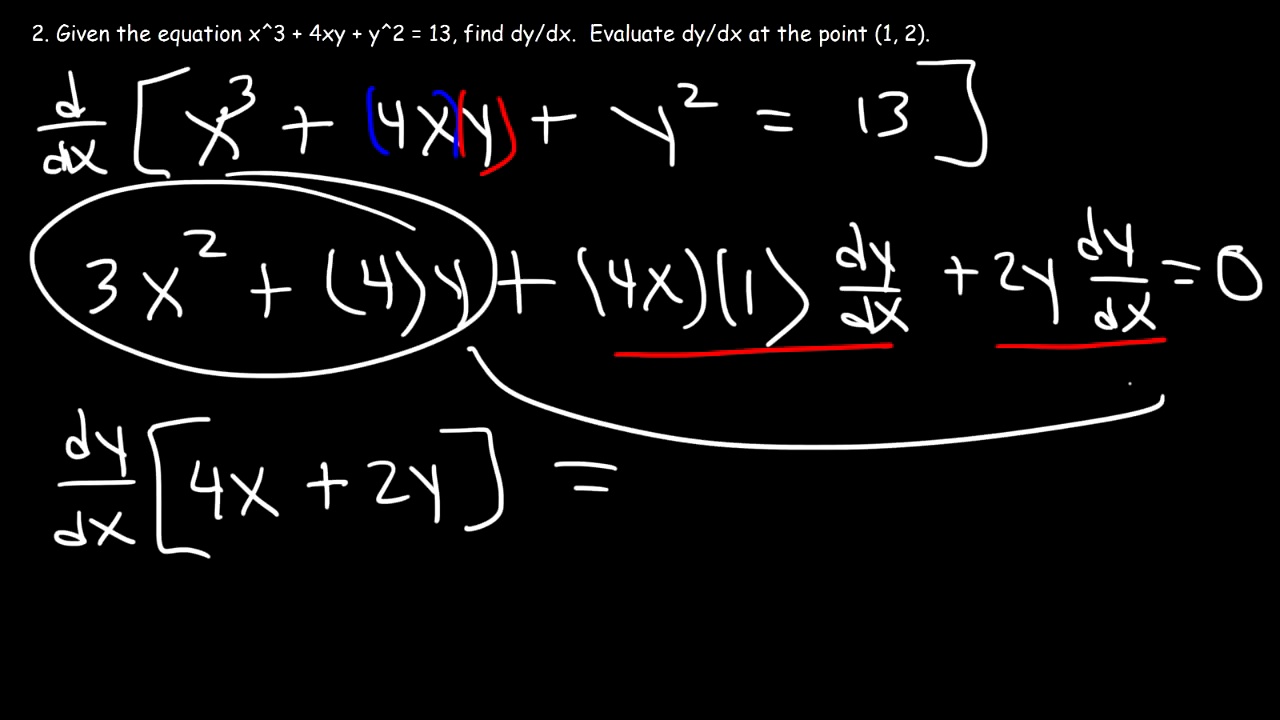 2. Given the equation x^3 + 4xy + y^2 = 13, find dy/dx. Evaluate dy/dx at the point (1, 2).
d/dx [x³ + (4x)(y) + y² = 13]
3x² + (4)y + (4x)(1) dy/dx + 2y dy/dx = 0
dy/dx [4x + 2y] =